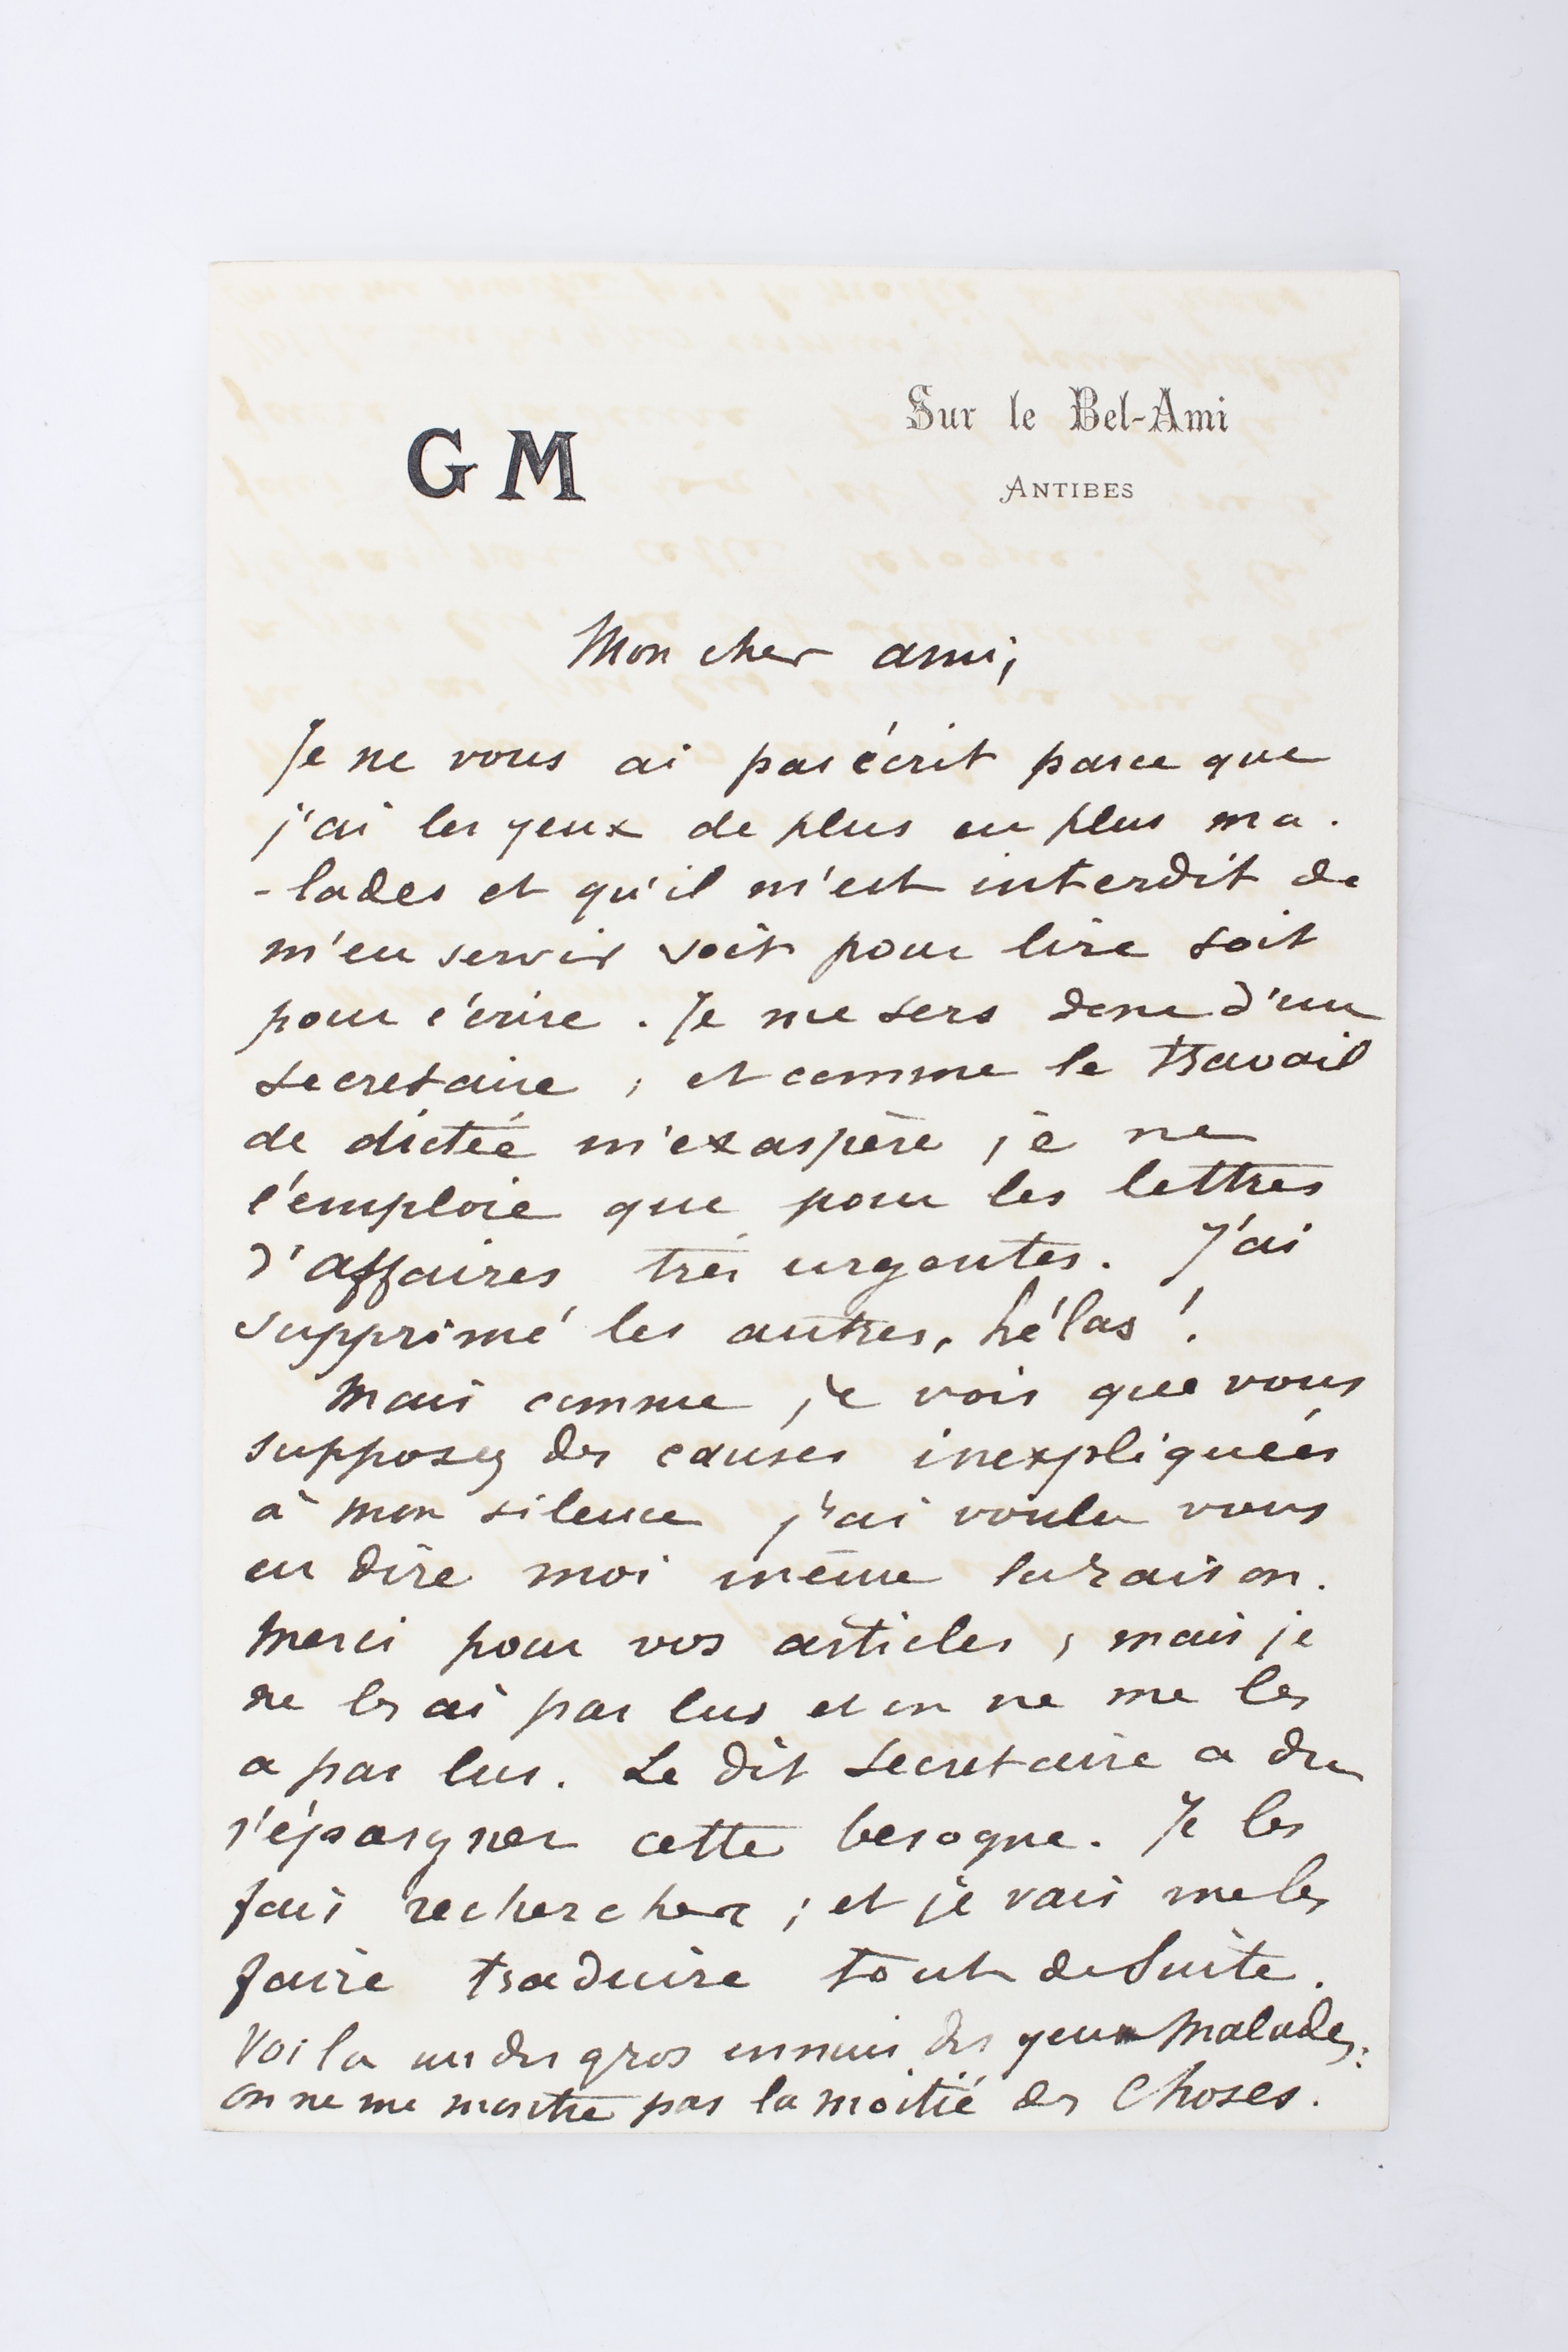 GM
Sur le Bel-Ami
ANTIBES
Mon cher ami,
Je ne vous ai pas écrit parce que
j'ai les yeux de plus en plus ma.
-lades et qu'il m'est interdit de
m'en servir soit pour lire soit
pour écrire. Je me sers donc d'un
secretaire, et comme le travail
de dictée m'exaspère je ne
l'emploie que pour les lettres
d'affaires très urgentes. J'ai
supprimé les autres, hélas !
Mais comme je vois que vous
supposez des causes inexpliquées
à mon silence j'ai voulu vous
en dire moi même la raison.
Merci pour vos articles, mais je
ne les ai pas lus et on ne me les
a pas lus. Le dit secretaire a du
s'épargner cette besogne. Je les
fais rechercher ; et je vais me les
faire traduire tout de suite.
Voila un des gros ennuis des yeux malades :
on ne me montre pas la moitié des choses.